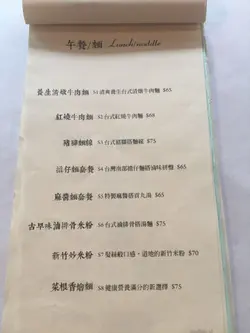 午餐/麵 Lunch/noodle
養生清燉牛肉麵 S1 清爽養生台式清燉牛肉麵 $65
紅燒牛肉麵 S2 台式紅燒牛肉麵 $68
豬腳麵線 S3 台式豬腳搭麵線 $75
沾仔麵套餐 S4 台灣南部擔仔麵搭滷味拼盤 $65
麻醬麵套餐 S5 特製麻醬搭貢丸湯 $65
古早味滷排骨米粉 S6 台式滷排骨搭湯麵 $75
新竹炒米粉 S7 髮絲般口感、道地的新竹米粉 $70
菜根香燴麵 S8 健康營養滿分的新選擇 $75